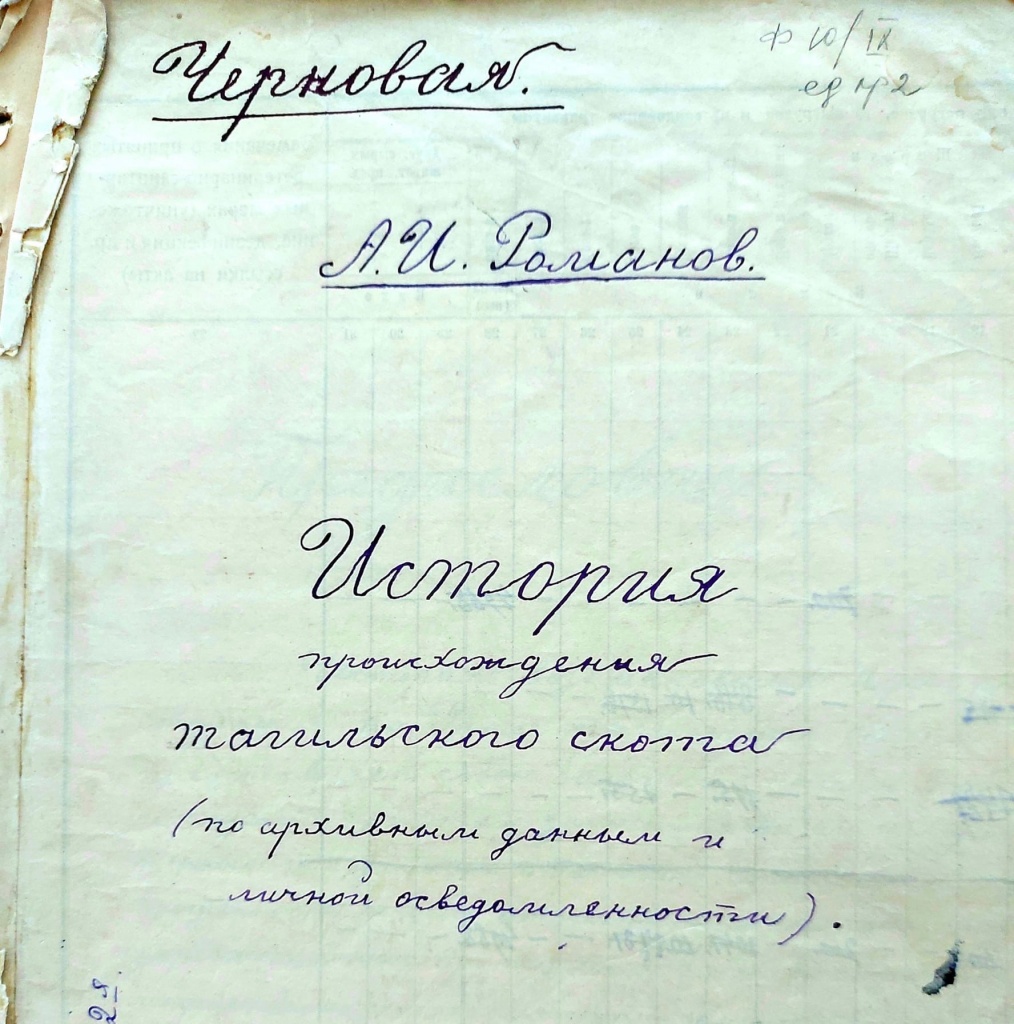 Ф 10/IX
ед хр 2
Черновая.
А.И. Романов.
История
происхождения
тагильского скота
(по архивным данным и
личной осведомленности).